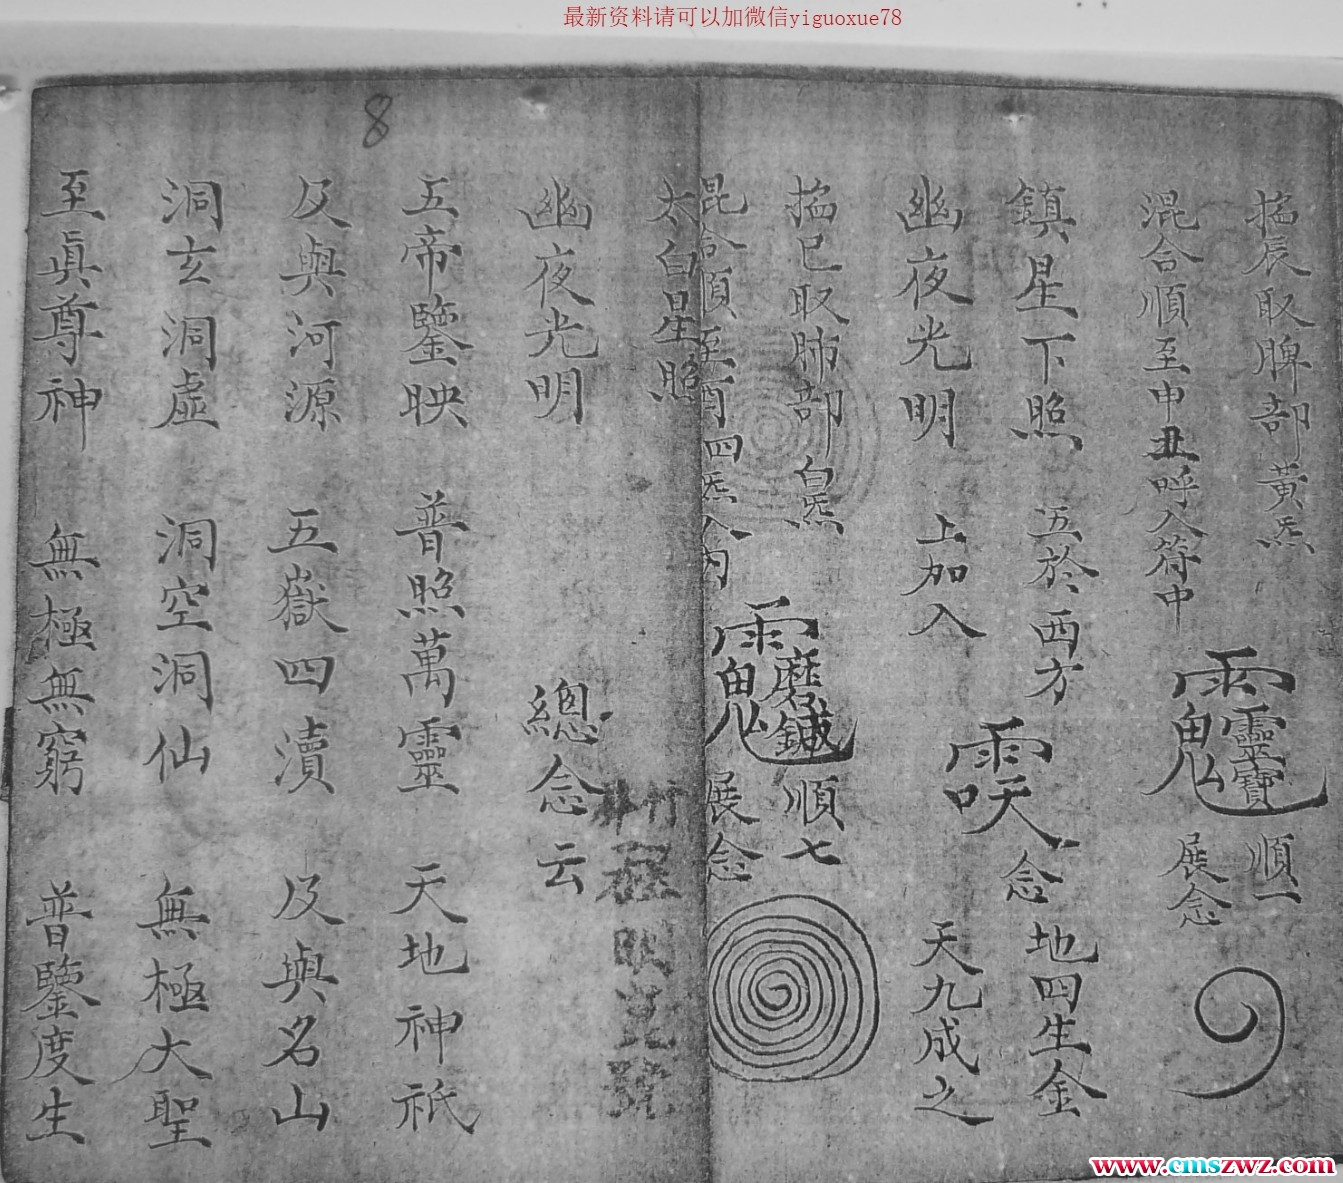 最新资料请可以加微信yiguoxue78
8
掐辰取脾部黃炁
混合順至申丑呼入符中
順一
展念
鎮星下照
五於西方
念地四生金
幽夜光明
上加入
天九成之
掐巳取肺部白炁
順七
混合順至酉四炁入內
展念
太白星照
幽夜光明
總念云
五帝鑒映 普照萬靈 天地神祇
及與河源 五嶽四瀆 及與名山
洞玄洞虛 洞空洞仙 無極大聖
至眞尊神 無極無窮 普鑒度生
www.cmszwz.com